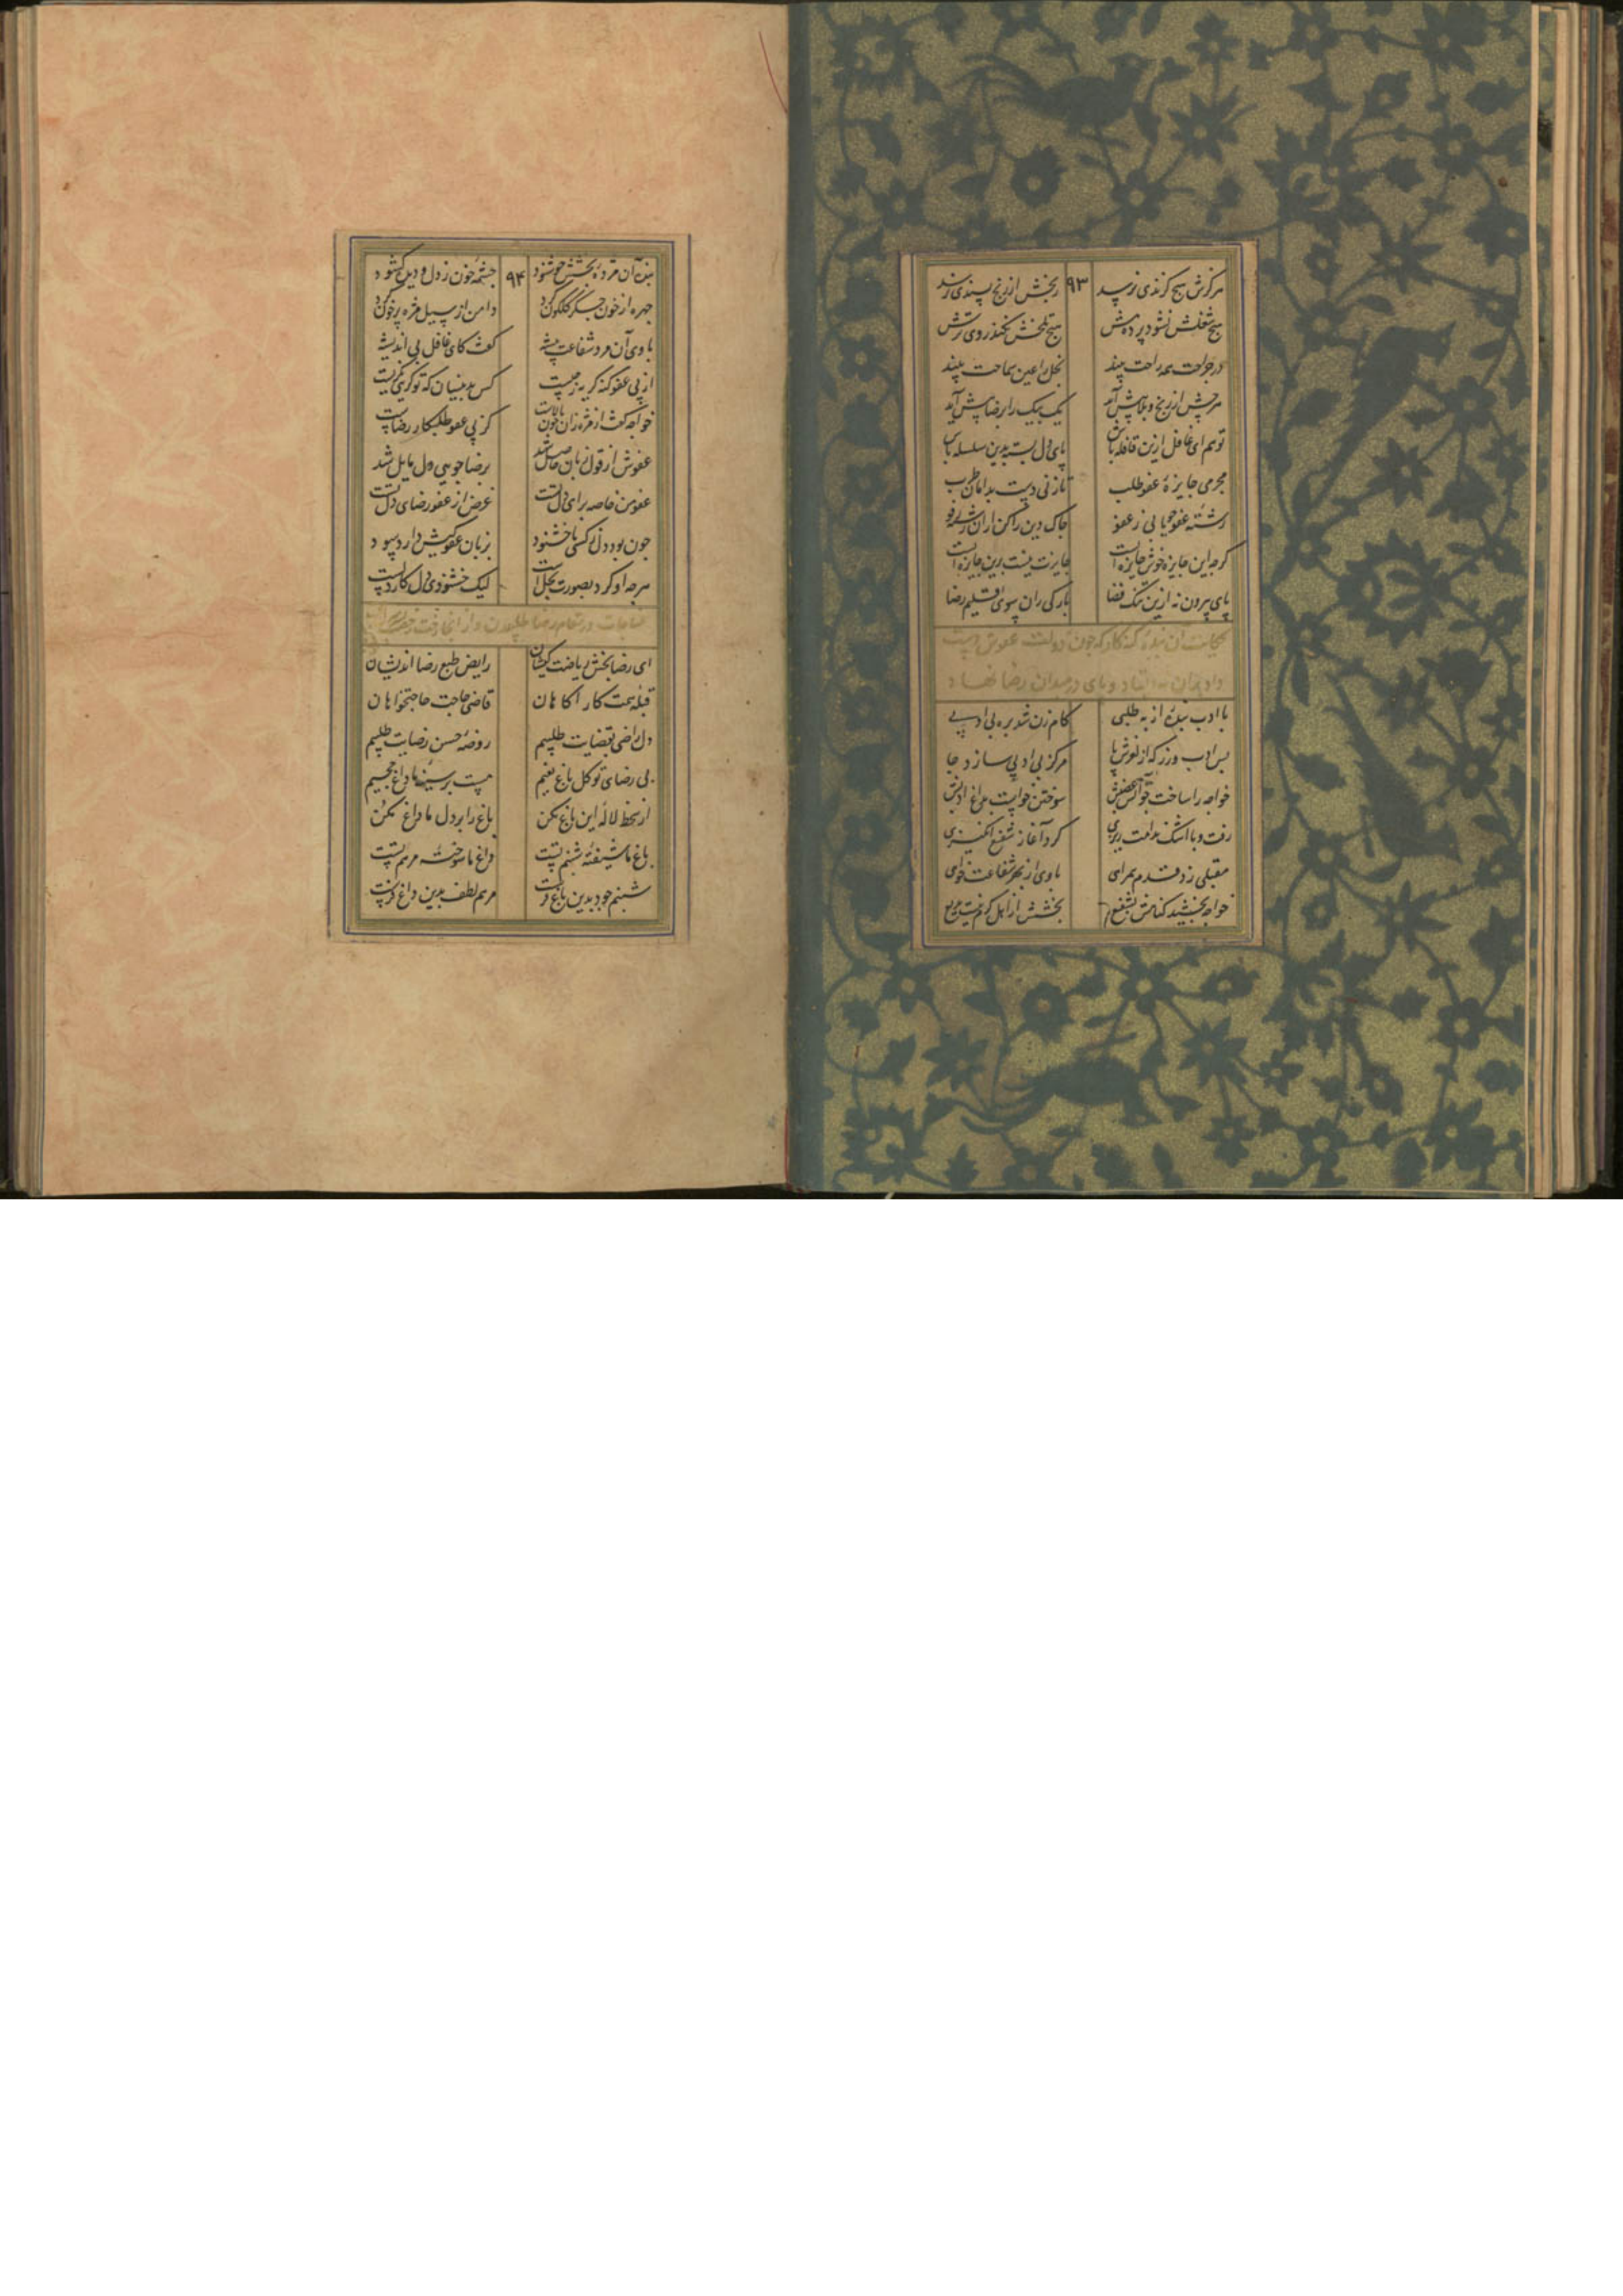 هرگزش هیچ گزندی نرسد ۹۳ رنجش از رنج پسندی نرسد
هیچ شغلش نشود پرده هش هیچ تلخش نکند روی ترش
در جراحت همه راحت بیند بخل را عین سماحت بیند
هرچش از رنج و بلا پیش آید یک بیک را برضا پیش آید
تو هم ای غافل ازین قافله باش پای دل بسته بدین سلسله باش
مجرمی جایزه عفو طلب تا زنی دست بدامان طرب
رشته عفو چو یابی ز عفو چاک دین را کن از ان رشته رفو
گرچه این جایزه خوش جایزه است جایزت نیست برین جایزه ایست
پای بیرون نه ازین تنگ فضا بارگی ران سوی اقلیم رضا
حکایت آن بنده گنه کار که چون دولت عفوش دست
داد بران نه ایستاد و پای در میدان رضا نهاد
با ادب بنده از به طلبی گام زن شد بره بی ادبی
بس ادب ورز که از لغزش پا مرکز بی ادبی سازد جا
خواجه را ساخت چو آتش غضبش سوختن خواست بداغ ادبش
رفت و با اشک ندامت ریزی کرد آغاز شفیع انگیزی
مقبلی زد قدم همراهی با وی از بهر شفاعت خواهی
خواجه بخشید گناهش بشفیع بخشش از اهل کرم نیست بدیع
بنده آن مژده بخشش چو شنود ۹۴ چشمه خون ز دل و دیده گشود
چهره از خون جگر گلگون کرد دامن از سیل مژه پر خون کرد
با وی آن مرد شفاعت پیشه گفت کای غافل بی اندیشه
از پی عفو گنه گریه ز چیست کس بدینسان که تو گریی نگریست
خواجه گفت از مژه زان خون پالاست کز پی عفو طلبکار رضاست
عفوش از قول زبان حاصل شد برضا جویی دل مایل شد
عفو من خاصه برای دل تست غرض از عفو رضای دل تست
چون بود دل ز کسی ناخشنود بزبان عفو کیش دارد سود
هرچه او کرد بصورت بحل است لیک خشنودی دل کار دلست
مناجات در مقام رضا طلبیدن و از انجا رخت
ای رضا بخش ریاضت کیشان رایض طبع رضا اندیشان
قبله همت کار آگاهان قاضی حاجت حاجتخواهان
دل راضی بقضایت طلبیم روضه حسن رضایت طلبیم
بی رضای تو گل باغ نعیم هست بر سینه ما داغ جحیم
از سخط لاله این باغ مکن باغ را بر دل ما داغ مکن
باغ ما شیفته شبنم تست داغ ما سوخته مرهم تست
شبنم جود بدین باغ فرست مرهم لطف بدین داغ فرست